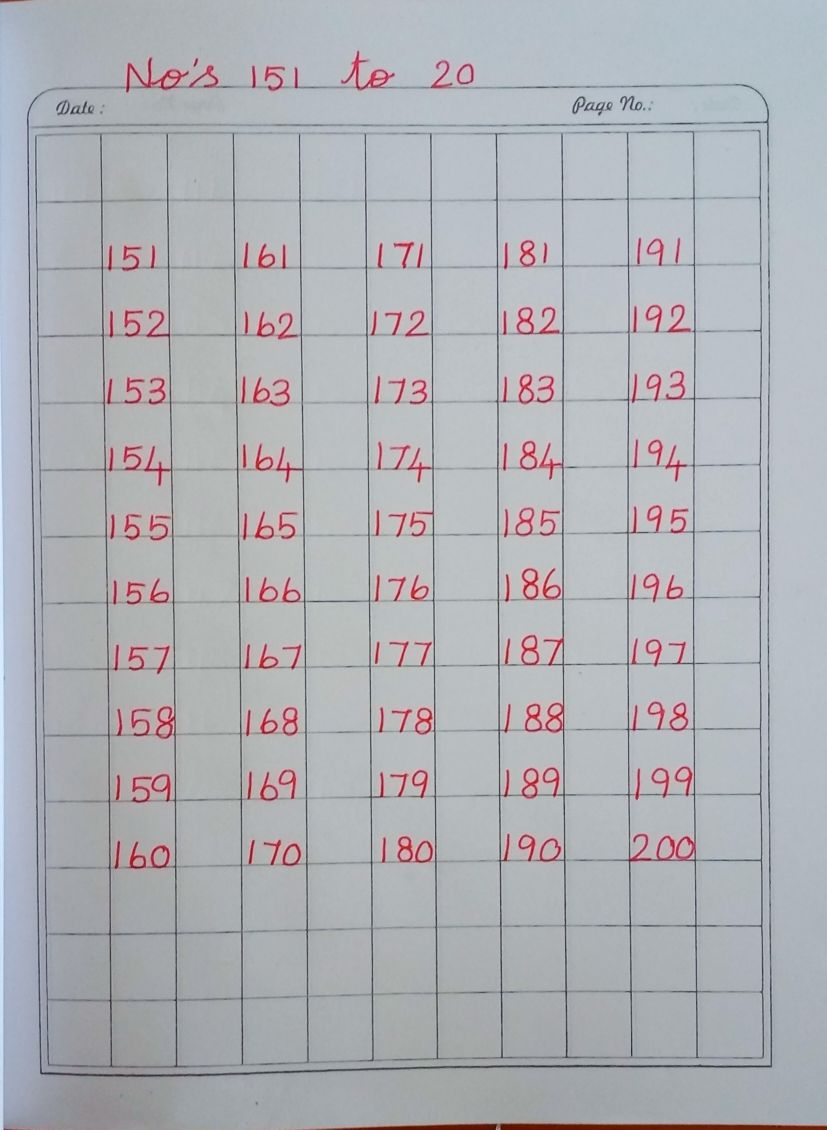 No's 151 to 20
Date: Page No.:
151 161 171 181 191
152 162 172 182 192
153 163 173 183 193
154 164 174 184 194
155 165 175 185 195
156 166 176 186 196
157 167 177 187 197
158 168 178 188 198
159 169 179 189 199
160 170 180 190 200